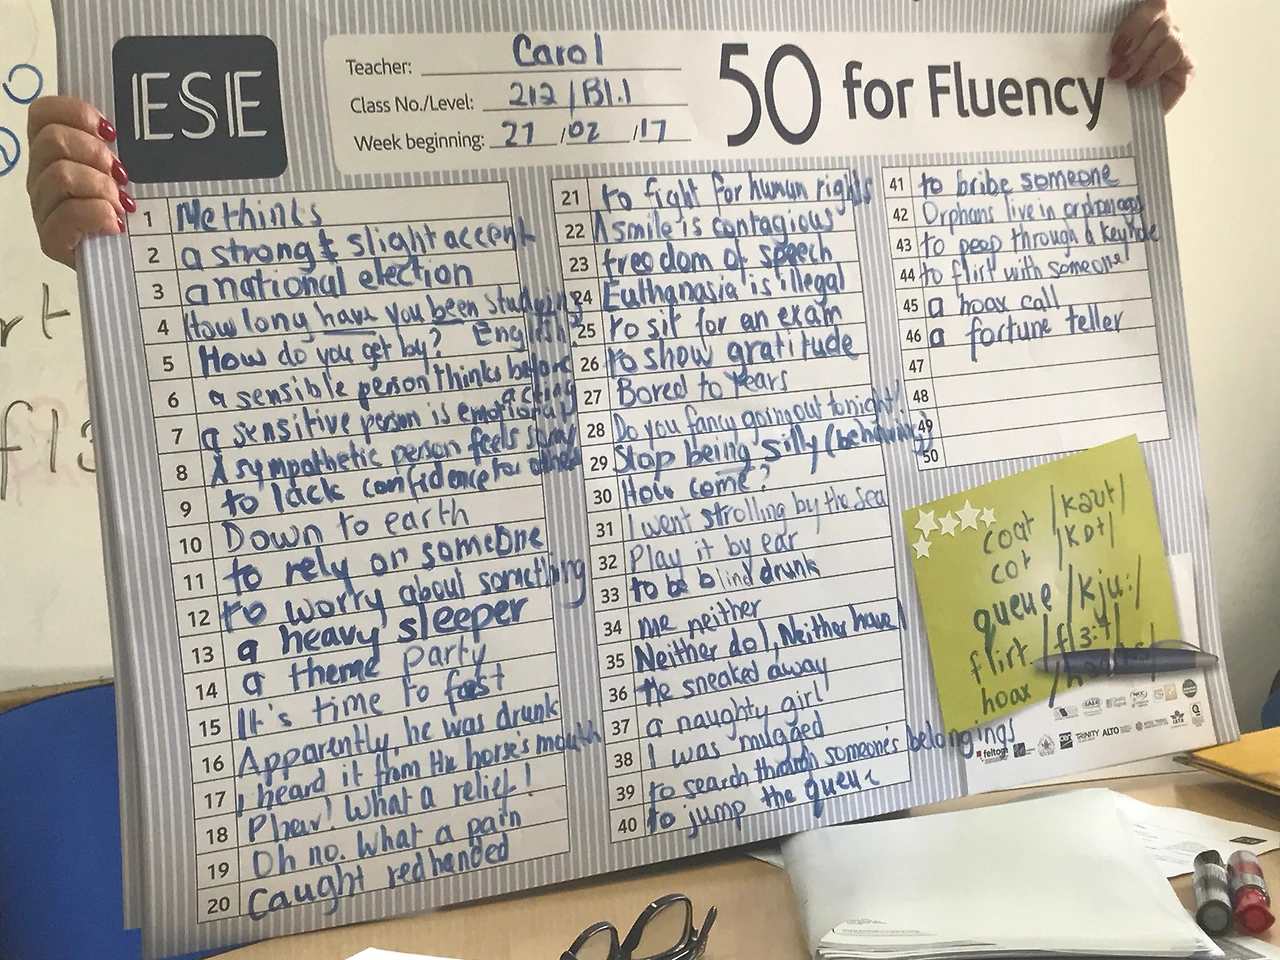 ESE
Teacher: Carol
Class No./Level: 212/B1.1
Week beginning: 27/02/17
50 for Fluency
1 Methinks
2 a strong & slight accent
3 a national election
4 How long have you been studying English?
5 How do you get by?
6 a sensible person thinks before acting
7 a sensitive person is emotional
8 A sympathetic person feels sorry for others
9 to lack confidence
10 Down to earth
11 to rely on someone
12 to worry about something
13 a heavy sleeper
14 a theme party
15 It's time to fast
16 Apparently, he was drunk
17 I heard it from the horse's mouth
18 Phew! What a relief!
19 Oh no. What a pain
20 Caught redhanded
21 to fight for human rights
22 A smile is contagious
23 freedom of speech
24 Euthanasia is illegal
25 to sit for an exam
26 to show gratitude
27 Bored to tears
28 Do you fancy going out tonight?
29 Stop being silly (behaving)
30 How come?
31 I went strolling by the sea
32 Play it by ear
33 to be blind drunk
34 me neither
35 Neither do I, Neither have I
36 He sneaked away
37 a naughty girl
38 I was mugged
39 to search through someone's belongings
40 to jump the queue
41 to bribe someone
42 Orphans live in orphanages
43 to peep through a keyhole
44 to flirt with someone
45 a hoax call
46 a fortune teller
47
48
49
50
coat /kəʊt/
cot /kɒt/
queue /kju:/
flirt
hoax
feltom
TRINITY
ALTO